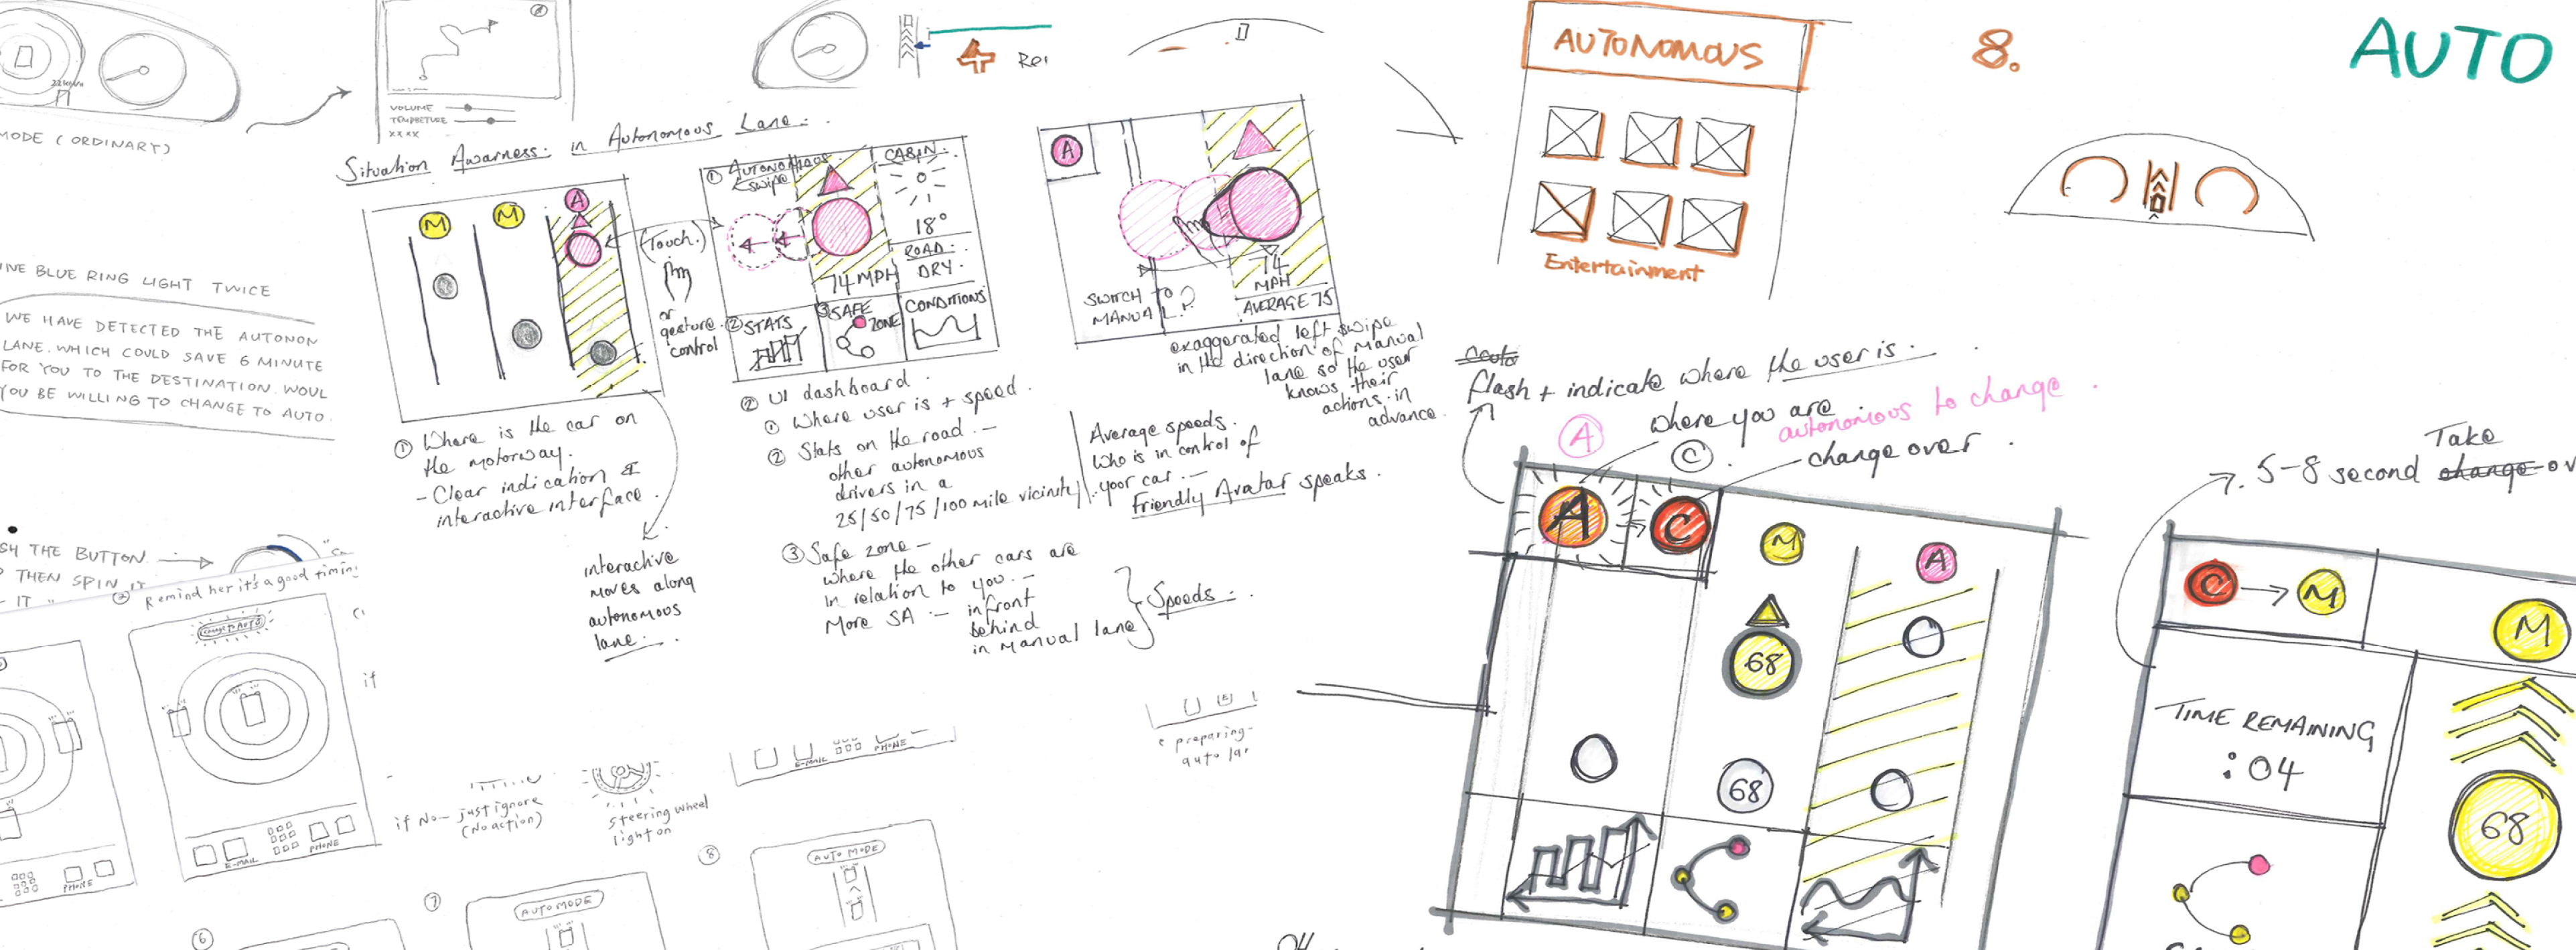 MODE (ORDINARY)
VOLUME
XXXX
Situation Awarness: in Autonomous Lane:
M
M
A
(Touch.)
or
gesture
control
① AUTONOMOUS
swipe
CABIN:
18°
ROAD:
DRY.
74 MPH
② STATS
③ SAFE
ZONE
CONDITIONS
A
SWITCH TO
MANUAL?
74
MPH
AVERAGE 75
exaggerated left swipe
in the direction of manual
lane so the user
knows their
actions in
advance.
AUTONOMOUS
Entertainment
8.
AUTO
BLUE RING LIGHT TWICE
WE HAVE DETECTED THE AUTONON
LANE. WHICH COULD SAVE 6 MINUTE
FOR YOU TO THE DESTINATION. WOUL
YOU BE WILLING TO CHANGE TO AUTO.
① Where is the car on
the motorway.
- Clear indication &
interactive interface.
interactive
moves along
autonomous
lane:
② UI dashboard.
① Where user is + speed.
② Stats on the road. -
other autonomous
drivers in a
25/50/75/100 mile vicinity
Average speeds.
Who is in control of
your car. -
Friendly Avatar speaks.
③ Safe zone -
where the other cars are
in relation to you. -
More SA :- infront
behind
in manual lane
Speeds:
flash + indicate where the user is.
A
where you are
autonomous to change
C
change over.
A
C
M
A
68
68
5-8 second Take
change ov
C → M
M
TIME REMAINING
:04
68
SH THE BUTTON
THEN SPIN IT
IT
Remind her it's a good timing
CHANGE TO AUTO
if
E-MAIL
PHONE
PHONE
if No - just ignore
(No action)
steering wheel
light on
E-MAIL
PHONE
preparing
⑥
⑦
AUTO MODE
⑧
AUTO MODE